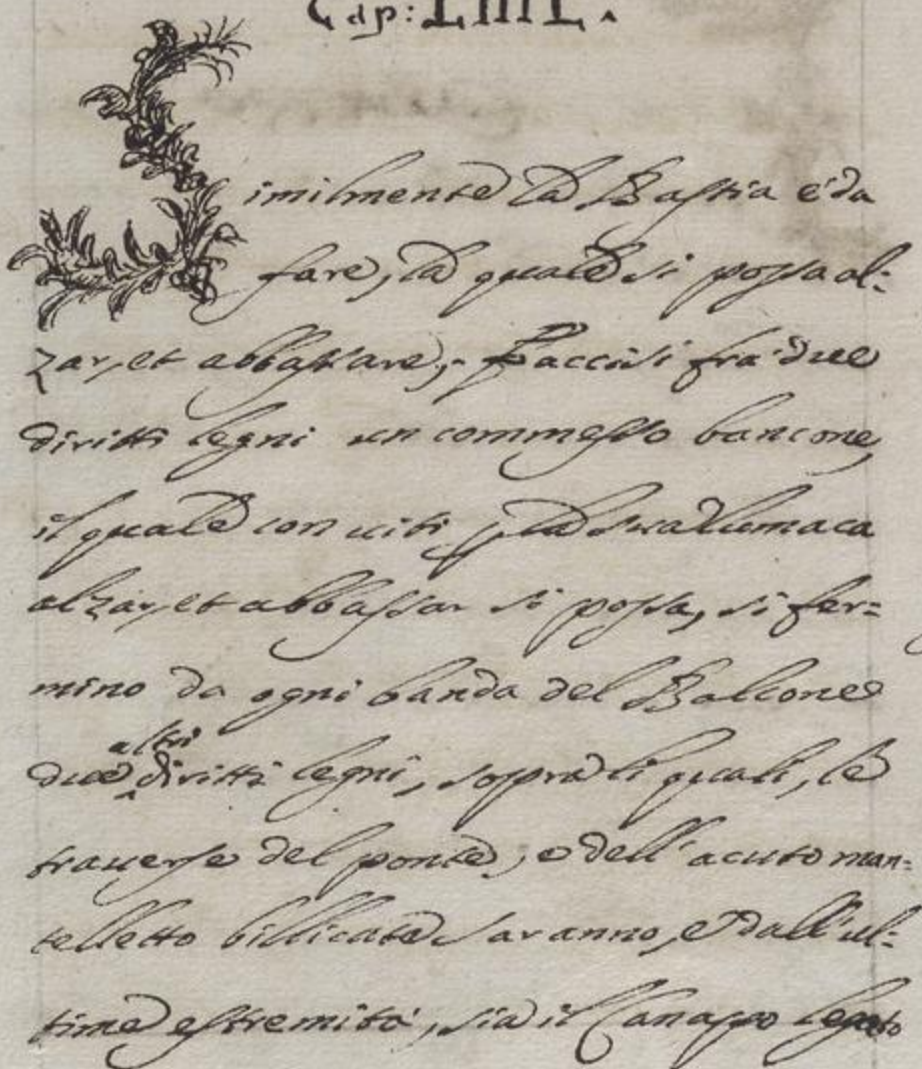 Cap: LIIII.
Similmente la Bastia è da
fare, la quale si possa al:
zar, et abbassare; Faccisi fra due
diritti legni un commesso bancone,
il quale con viti, la sua lumaca
alzar, et abbassar si possa, si fer=
mino da ogni banda del Balcone
due altri diritti legni, sopra li quali, le
trauerse del ponte, e dell'acuto man=
telletto billicate saranno, e dall'ul:
time estremità, sia il Canapo legato